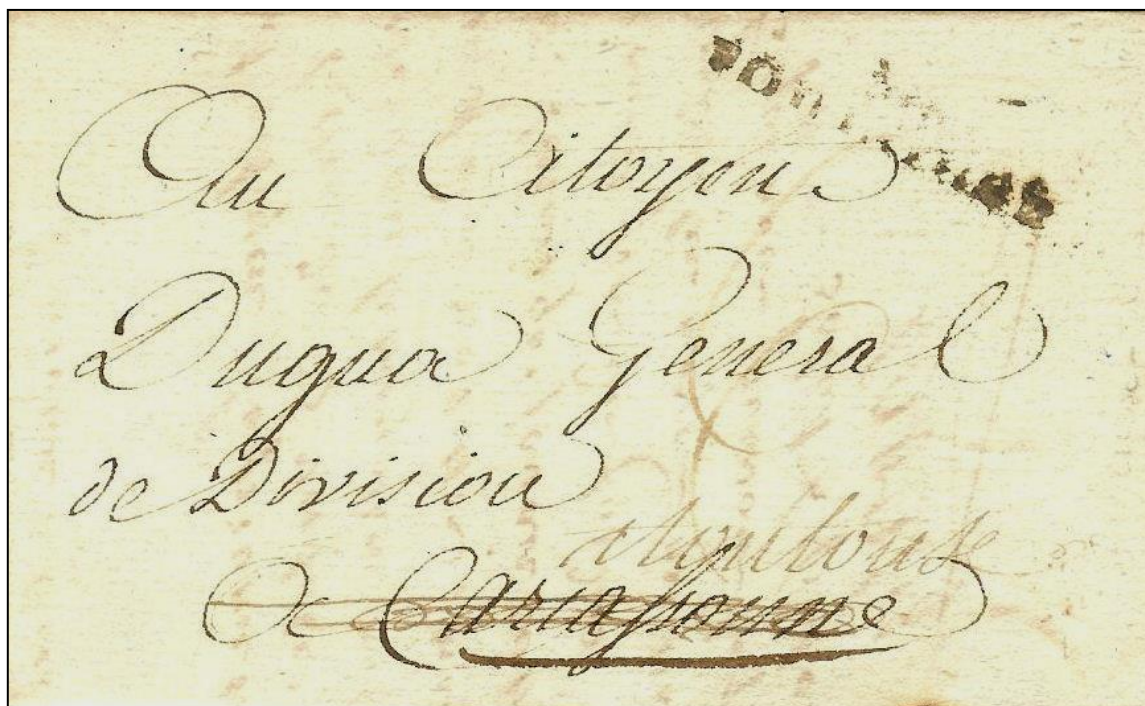 Au Citoyen
Dugua General
de Division
a toulouse
a Carcassonne